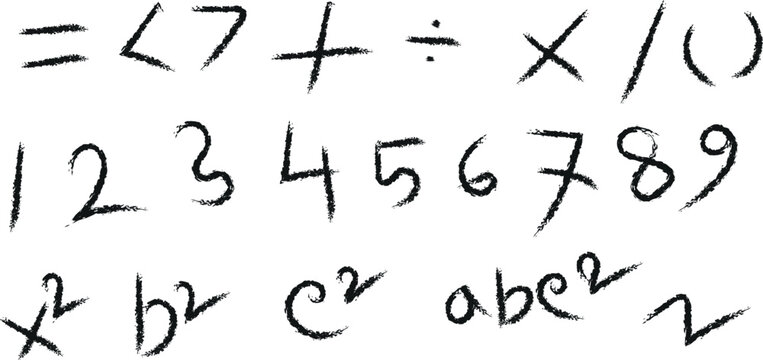 = < > + ÷ × / ( )
1 2 3 4 5 6 7 8 9
x² b² c² abc² 2